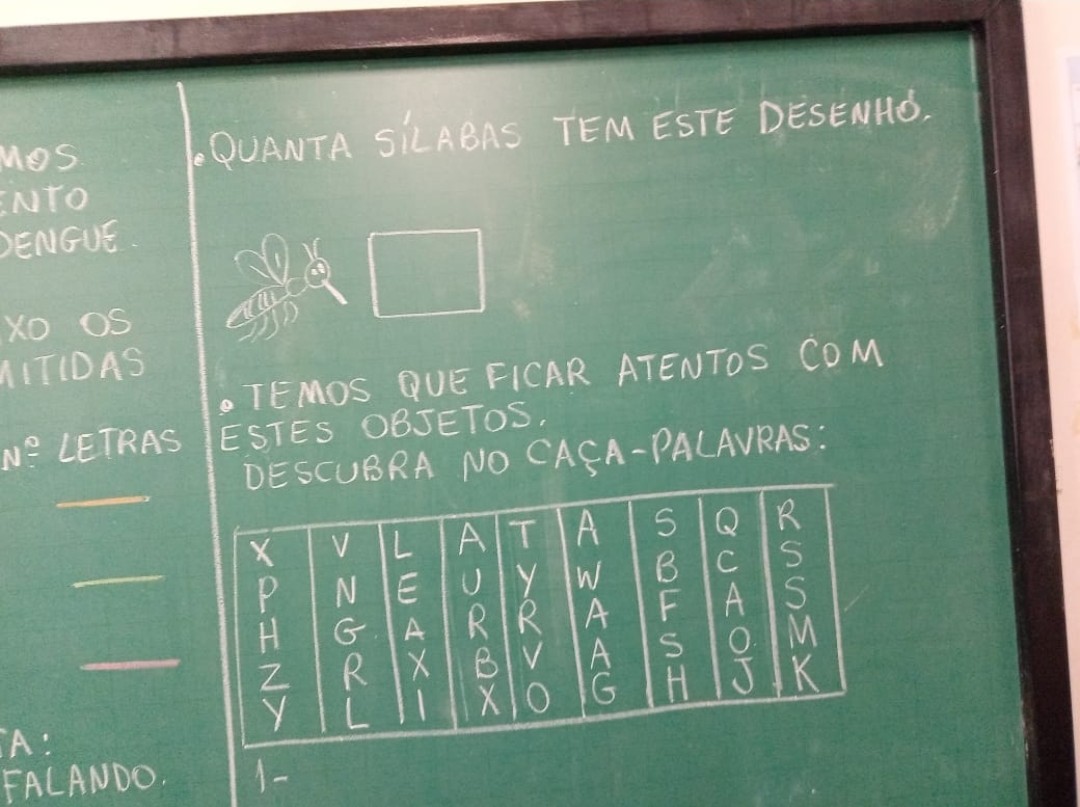 MOS
ENTO
DENGUE.
XO OS
MITIDAS
Nº LETRAS
TA:
FALANDO.
.QUANTA SÍLABAS TEM ESTE DESENHO.
.TEMOS QUE FICAR ATENTOS COM
ESTES OBJETOS.
DESCUBRA NO CAÇA-PALAVRAS:
X V L A T A S Q R
P N E U Y W B C S
H G A R R A F A S
Z R X B V A S O M
Y L I X O G H J K
1-